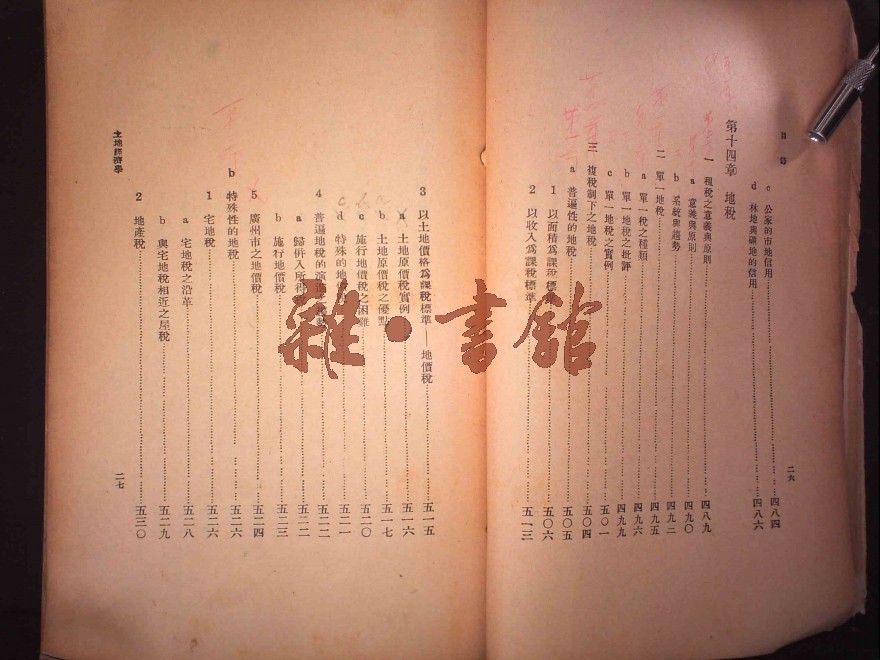 目錄
c 公家的市地信用 四八四
d 林地與礦地的信用 四八六
第十四章 地稅
一 租稅之意義與原則 四八九
a 意義與原則 四九〇
b 系統與趨勢 四九二
二 單一地稅 四九五
a 單一稅之種類 四九六
b 單一地稅之批評 四九九
c 單一地稅之實例 五〇一
三 複稅制下之地稅 五〇四
a 普遍性的地稅 五〇五
1 以面積爲課稅標準 五〇六
2 以收入爲課稅標準 五一三
二六
3 以土地價格爲課稅標準——地價稅 五一五
a 土地原價稅實例 五一六
b 土地原價稅之優點 五一七
c 施行地價稅之困難 五二〇
d 特殊的地價稅 五二一
4 普遍地稅的演進 五二二
a 歸併入所得稅 五二二
b 施行地價稅 五二三
5 廣州市之地價稅 五二四
b 特殊性的地稅 五二六
1 宅地稅 五二六
a 宅地稅之沿革 五二八
b 與宅地稅相近之屋稅 五二九
2 地產稅 五三〇
土地經濟學
二七
雜·書館